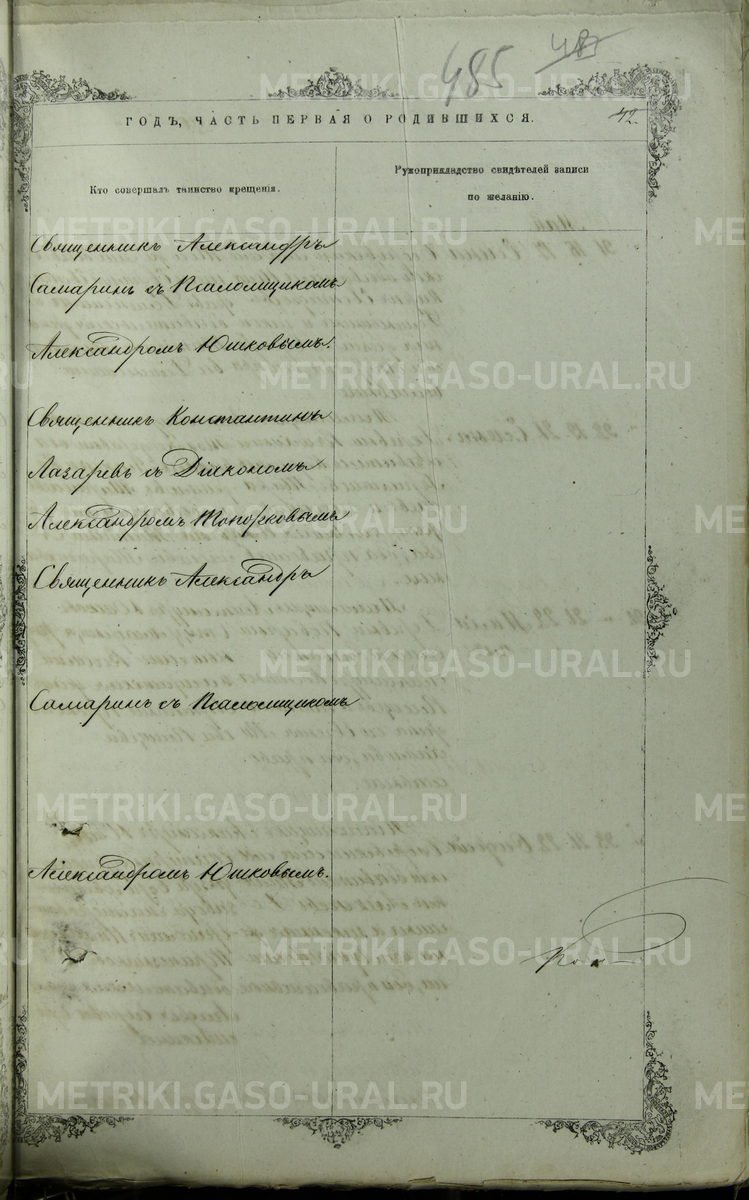 485
42.
ГОДЪ, ЧАСТЬ ПЕРВАЯ О РОДИВШИХСЯ.
Кто совершалъ таинство крещенія.
Рукоприкладство свидѣтелей записи
по желанію.
Священникъ Александръ
Самаринъ съ Псаломщикомъ
Александромъ Юшковымъ.
Священникъ Константинъ
Лазаревъ съ Діакономъ
Александромъ Топорковымъ
Священникъ Александръ
Самаринъ съ Псаломщикомъ
Александромъ Юшковымъ.
METRIKI.GASO-URAL.RU